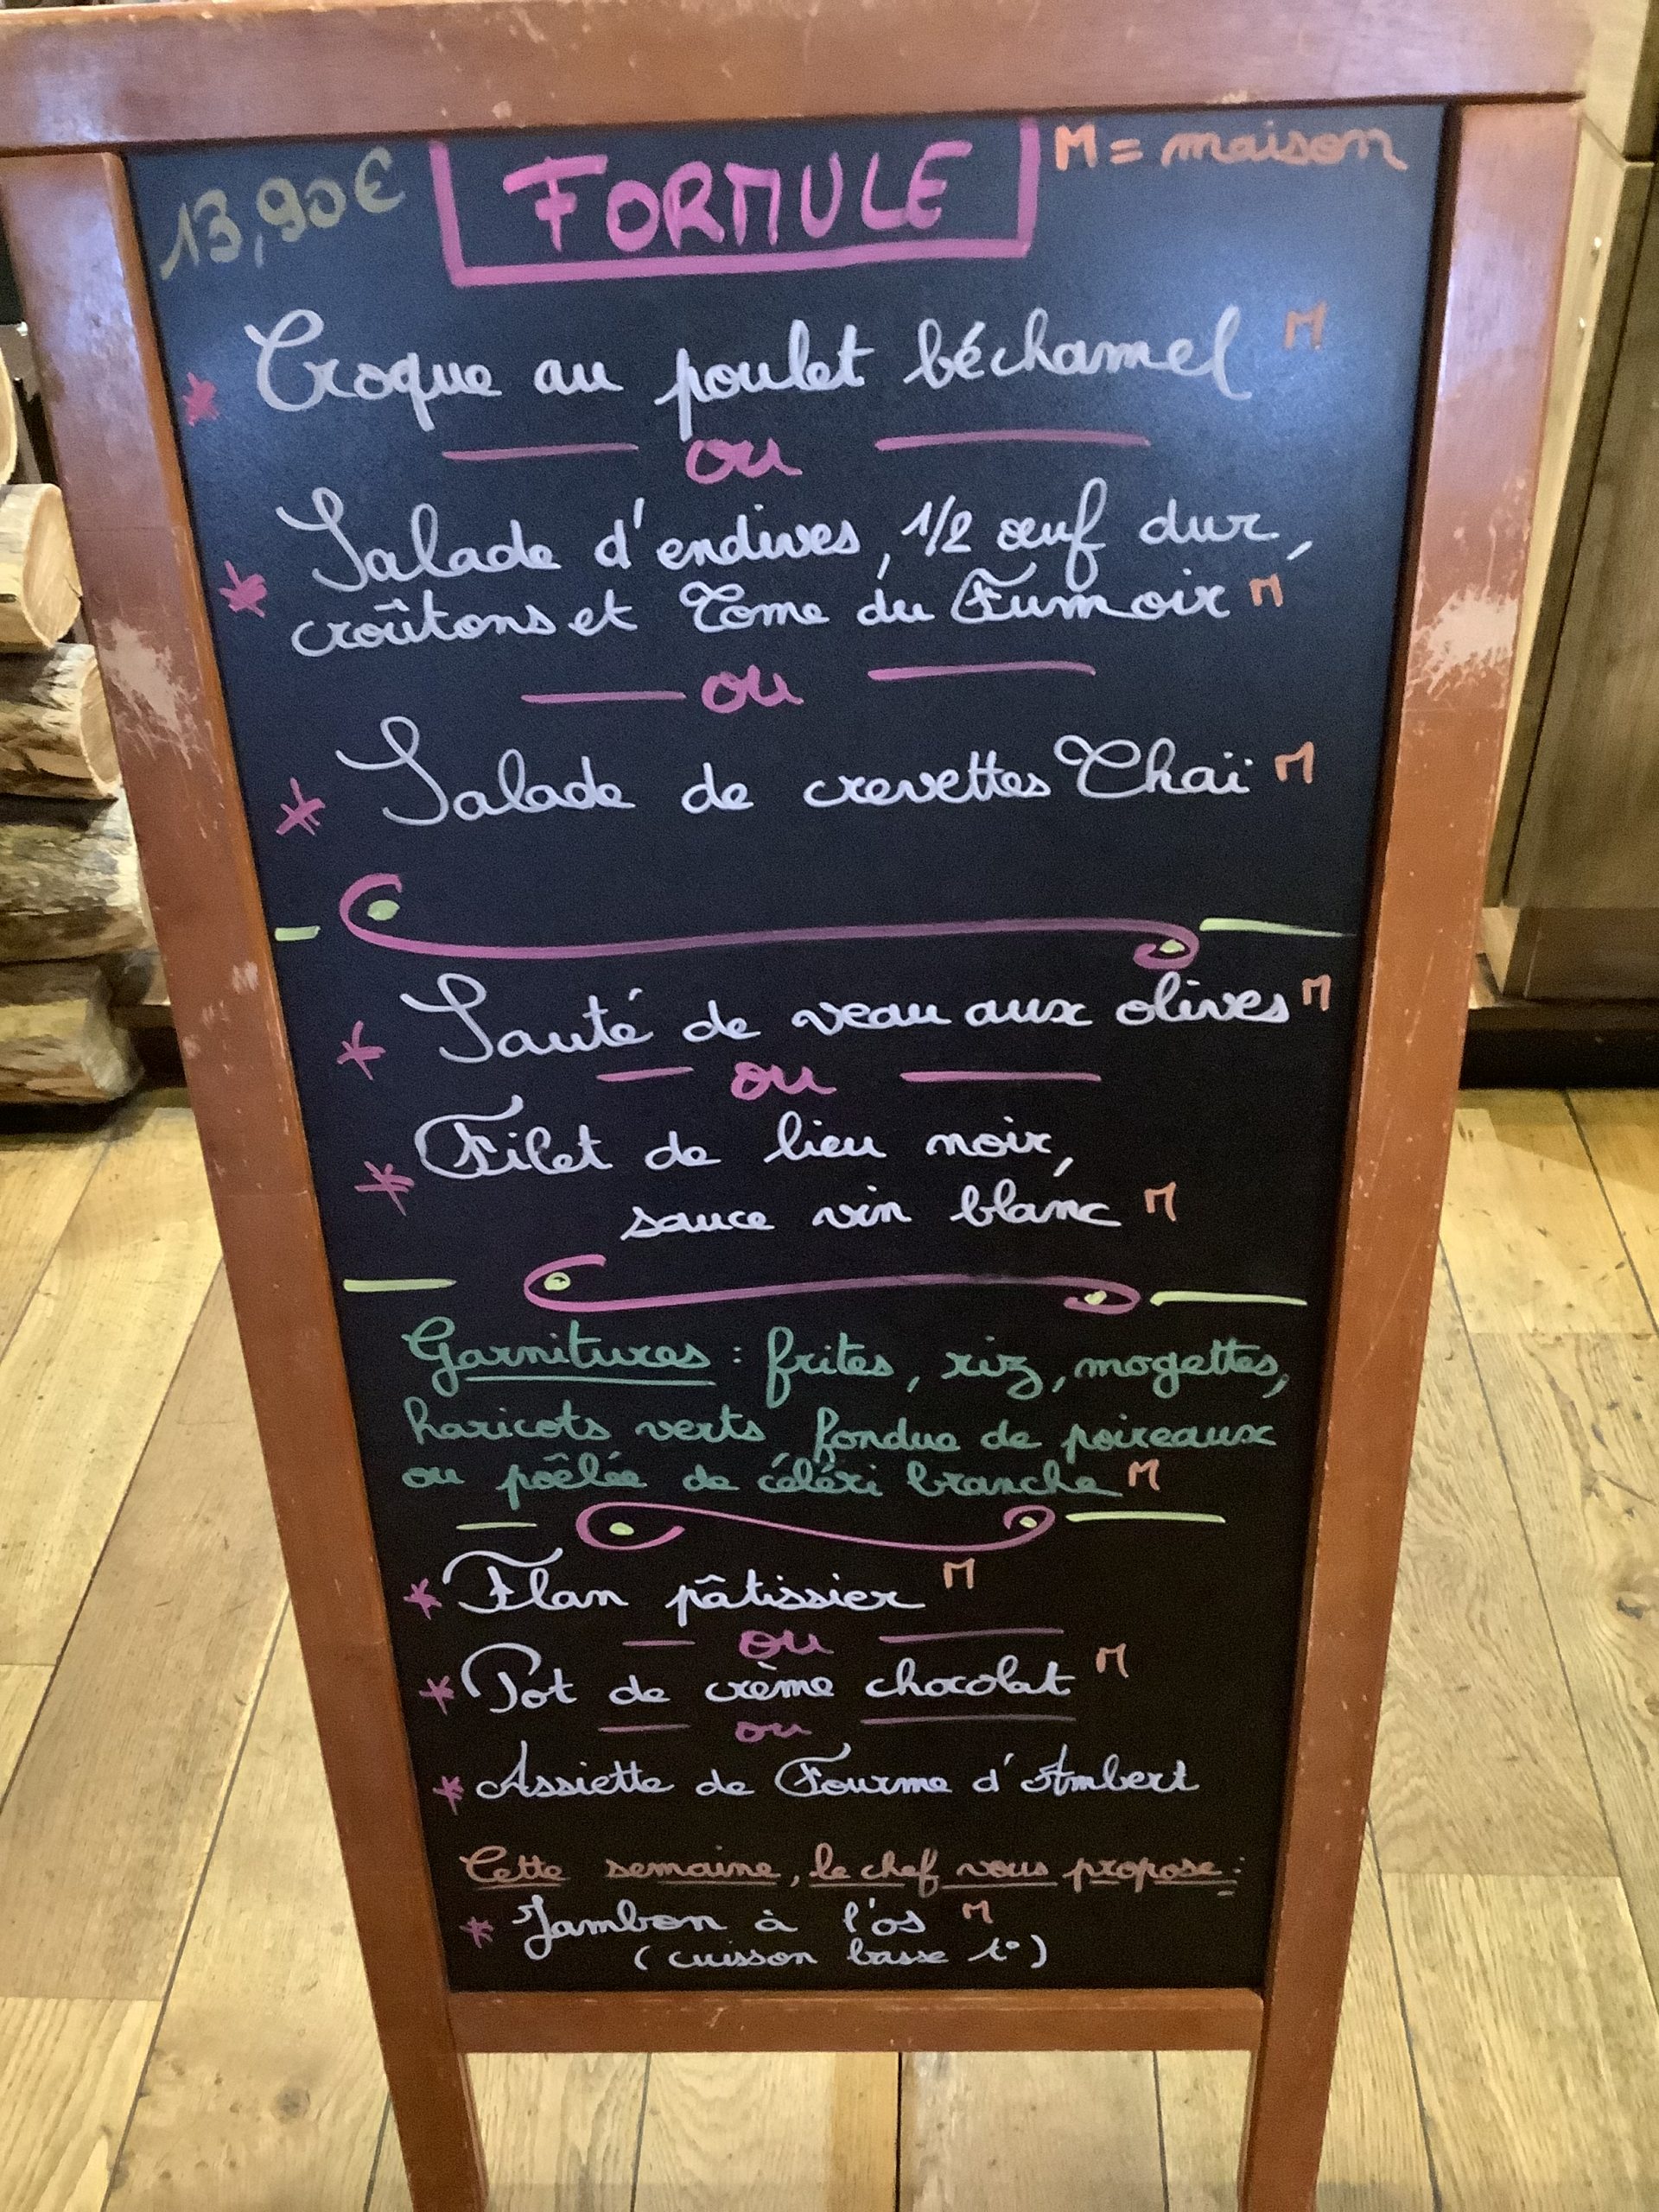 13,90€ FORMULE M = maison
* Croque au poulet béchamel M
ou
Salade d'endives, 1/2 œuf dur,
* croûtons et Tome du Fumoir M
ou
* Salade de crevettes Thaï M
* Sauté de veau aux olives M
ou
* Filet de lieu noir,
sauce vin blanc M
Garnitures : frites, riz, mogettes,
haricots verts fondue de poireaux
ou poêlée de céléri branche M
* Flan pâtissier M
ou
* Pot de crème chocolat M
ou
* Assiette de Fourme d'Ambert
Cette semaine, le chef vous propose :
* Jambon à l'os M
(cuisson basse t°)